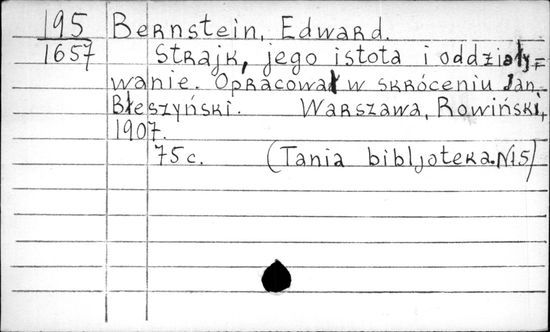 195 Bernstein, Edward.
1657 Strajk, jego istota i oddziały=
wanie. Opracował w skróceniu Jan
Błeszyński. Warszawa, Rowiński,
1907.
75 c. (Tania bibljoteka. N15)